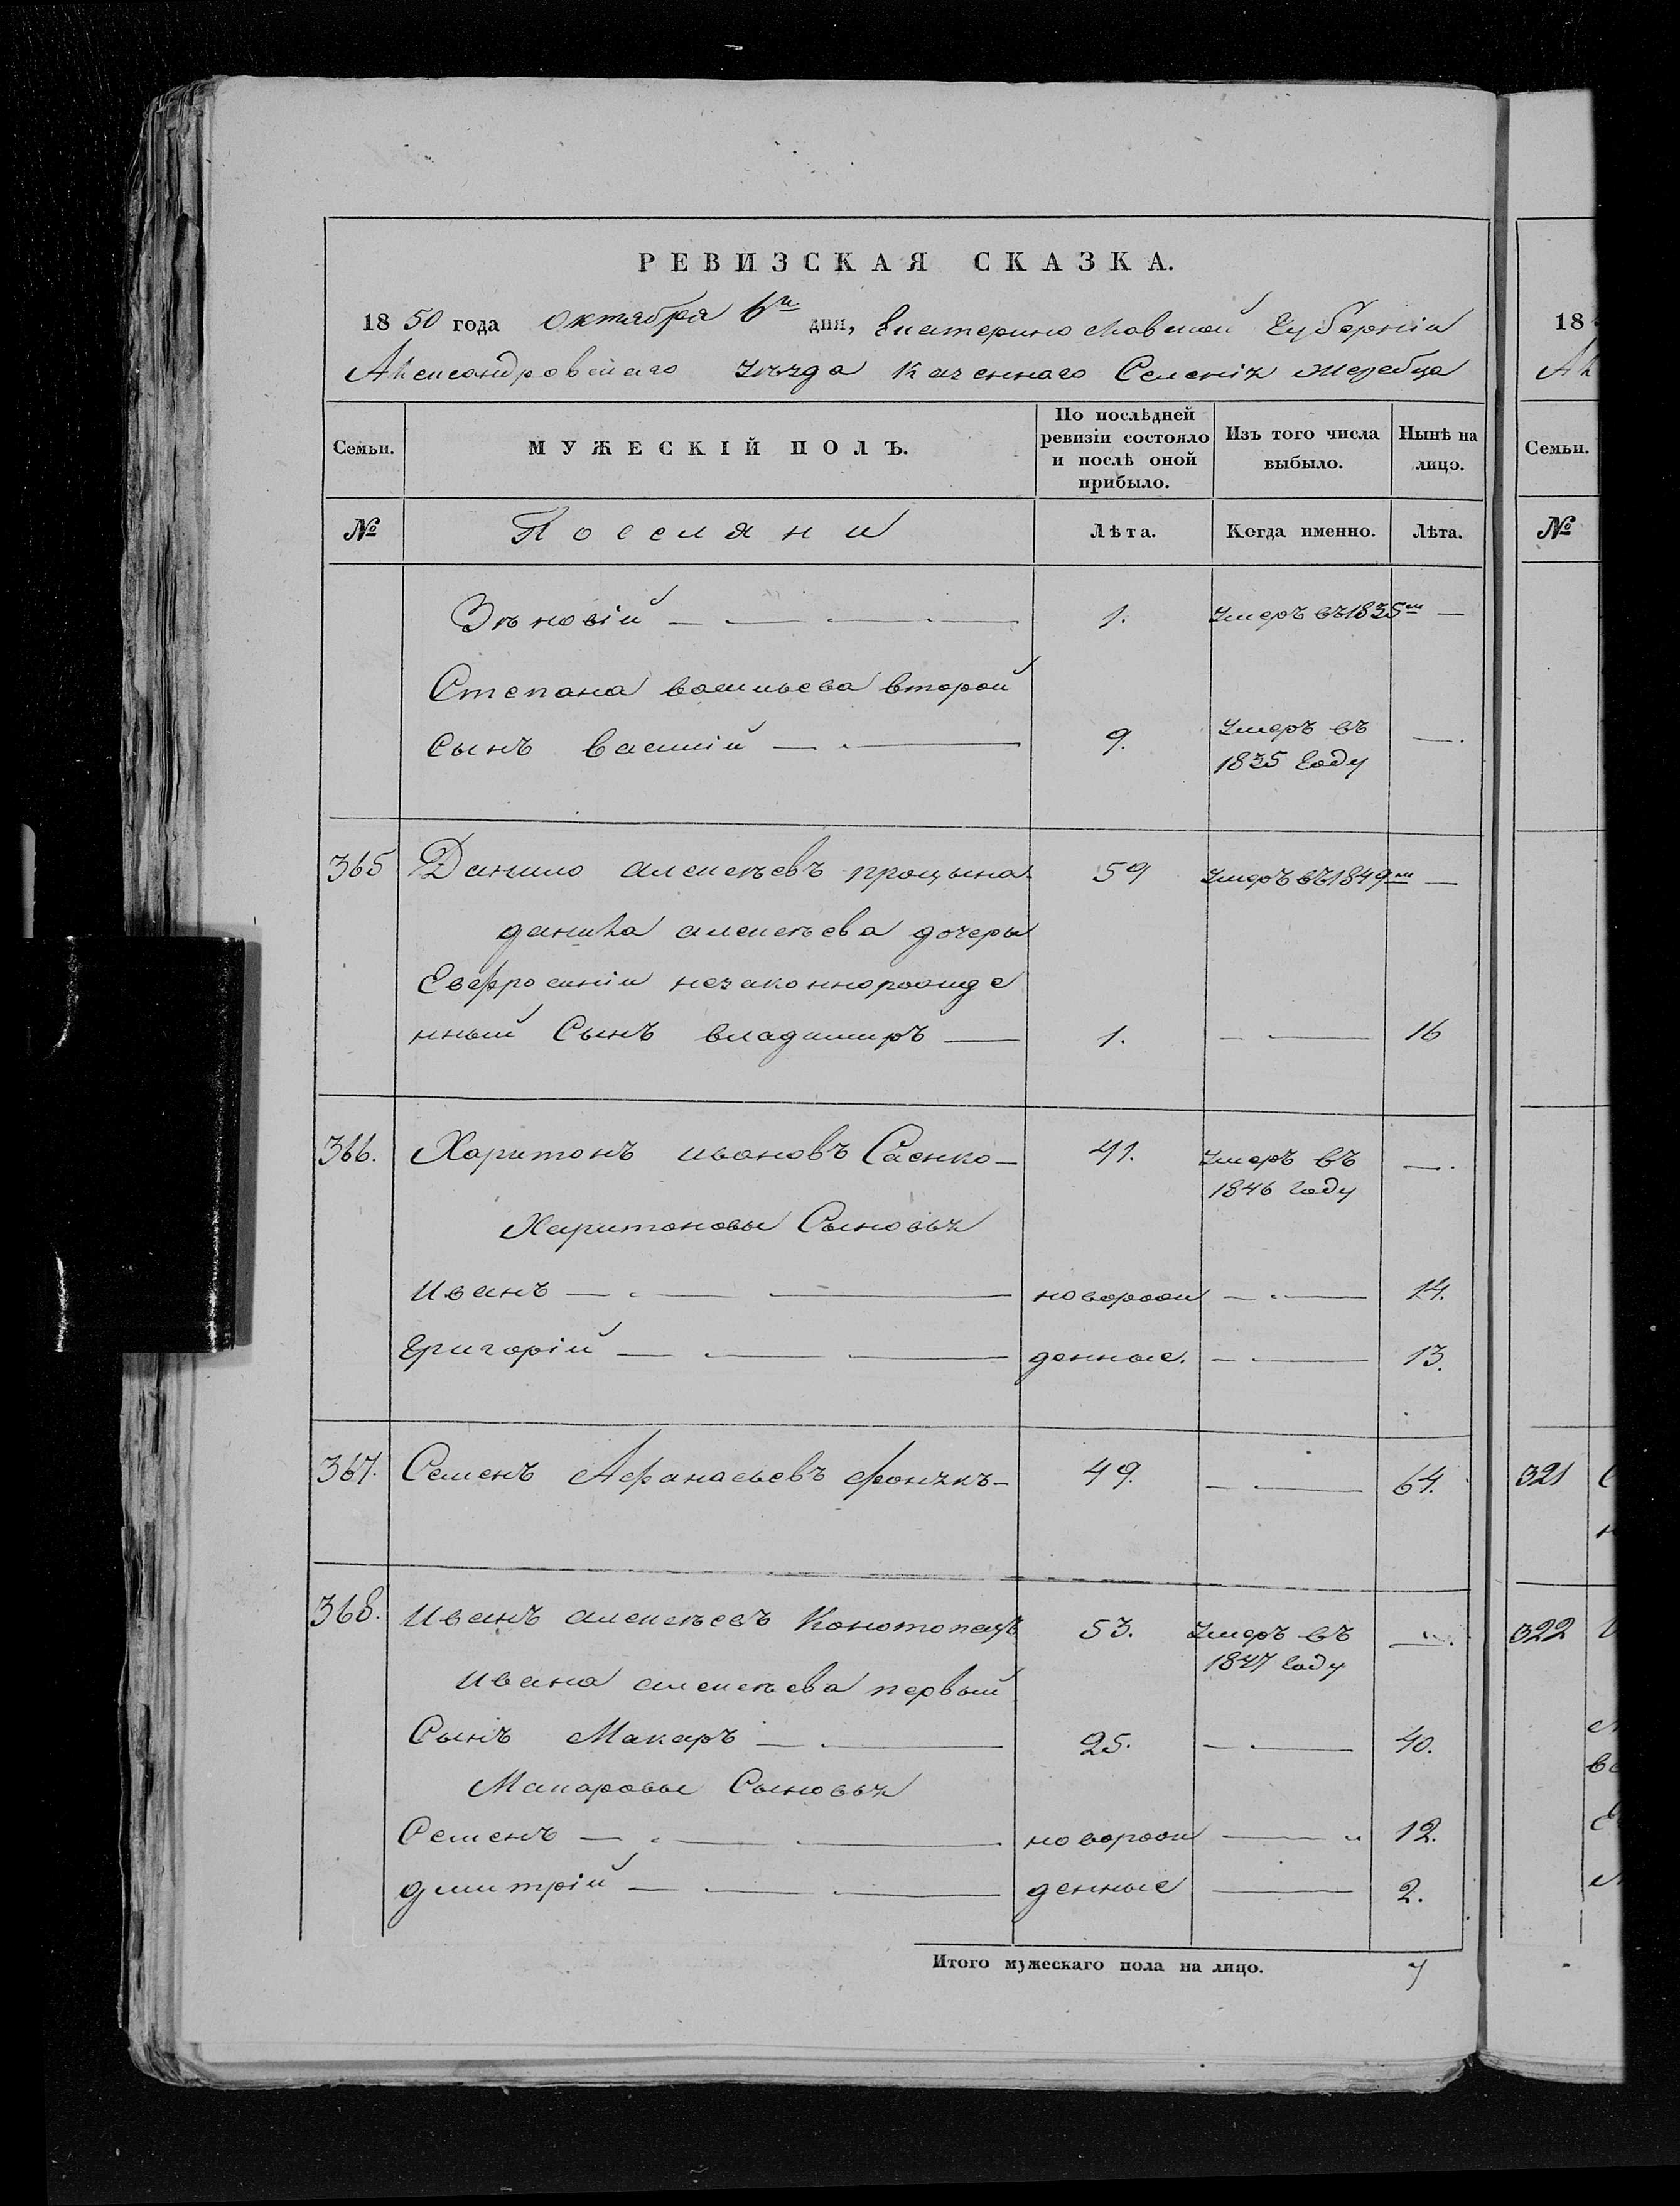 РЕВИЗСКАЯ СКАЗКА.
1850 года Октября 6го дня, Екатеринославской Губерніи
Александровскаго уѣзда Казеннаго Селенія Жеребца
Семьи.
МУЖЕСКІЙ ПОЛЪ.
По послѣдней ревизіи состояло и послѣ оной прибыло.
Изъ того числа выбыло.
Нынѣ на лицо.
№
Поселяни
Лѣта.
Когда именно.
Лѣта.
Зѣновій — 1. Умеръ въ 1835м —
Степана васильева второй
Сынъ василій — 9. Умеръ въ —
1835 Году
365 Данило алексѣевъ процына 59 Умеръ въ 1849м —
данила алексѣева дочеры
Евфросиніи незаконнорожде
нный Сынъ владимиръ — 1. — 16
366. Харитонъ ивановъ Саенко — 41. Умеръ въ —
1846 Году
Харитоновы Сыновья
иванъ — новорож — 14.
Григорій — денные. — 13.
367. Семенъ Афанасьевъ — 49. — 64.
368. иванъ алексѣевъ Конотопецъ 53. Умеръ въ —
1847 Году
ивана алексѣева первый
Сынъ Макаръ — 25. — 40.
Макаровы Сыновья
Семенъ — новорож — 12.
дмитрій — денные — 2.
Итого мужескаго пола на лицо. 7
18
Семьи.
№
321
322